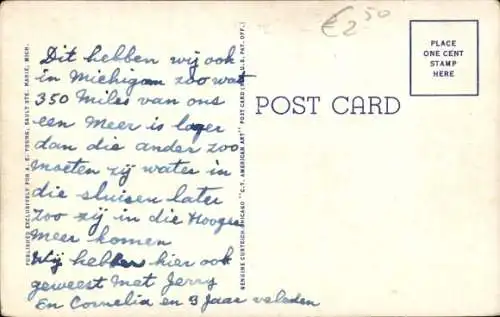 € 2 50
PLACE
ONE CENT
STAMP
HERE
POST CARD
PUBLISHED EXCLUSIVELY FOR A. E. YOUNG, SAULT STE. MARIE, MICH.
GENUINE CURTEICH-CHICAGO "C.T. AMERICAN ART" POST CARD (REG. U.S. PAT. OFF.)
Dit hebben wij ook
in Michigan zoo wat
350 Miles van ons
een Meer is lager
dan die ander zoo
moeten zij water in
die sluisen later
zoo zij in die Hooger
Meer komen
Wij hebben hier ook
geweest met Jerry
En Cornelia en 3 Jaar veleden